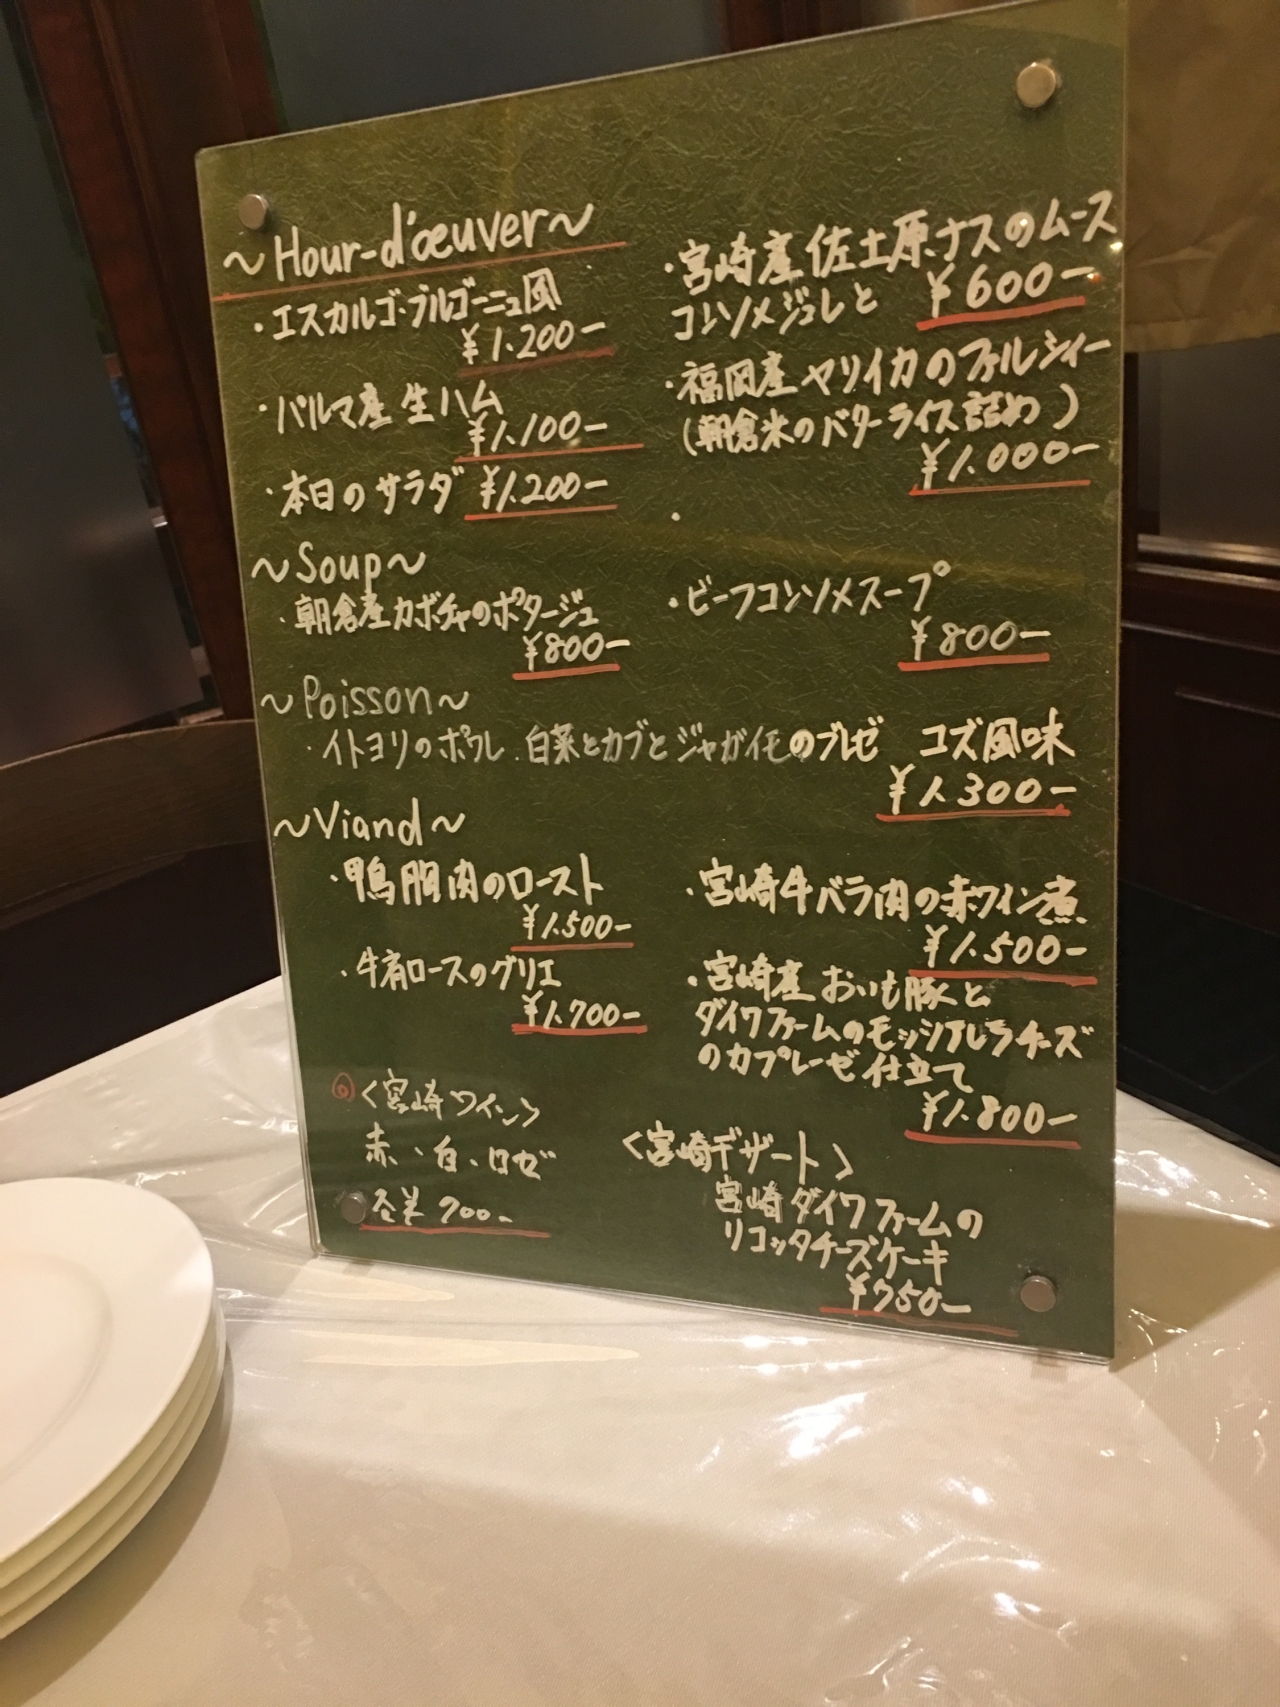 ～Hour-d'œuver～
・エスカルゴ・ブルゴーニュ風
¥1.200-
・パルマ産生ハム
¥1.100-
・本日のサラダ ¥1.200-
・宮崎産佐土原ナスのムース
コンソメジュレと ¥600-
・福岡産ヤリイカのファルシィー
(朝倉米のバターライス詰め)
¥1.000-
・
～Soup～
・朝倉産カボチャのポタージュ
¥800-
・ビーフコンソメスープ
¥800-
～Poisson～
・イトヨリのポワレ.白菜とカブとジャガイモのブレゼ コズ風味
¥1.300-
～Viand～
・鴨胸肉のロースト
¥1.500-
・牛肩ロースのグリエ
¥1.700-
・宮崎牛バラ肉の赤ワイン煮
¥1.500-
・宮崎産おいも豚と
ダイワファームのモッツアレラチーズ
のカプレーゼ仕立て
¥1.800-
<宮崎ワイン>
赤、白、ロゼ
700-
<宮崎デザート>
宮崎ダイワファームの
リコッタチーズケーキ
¥750-